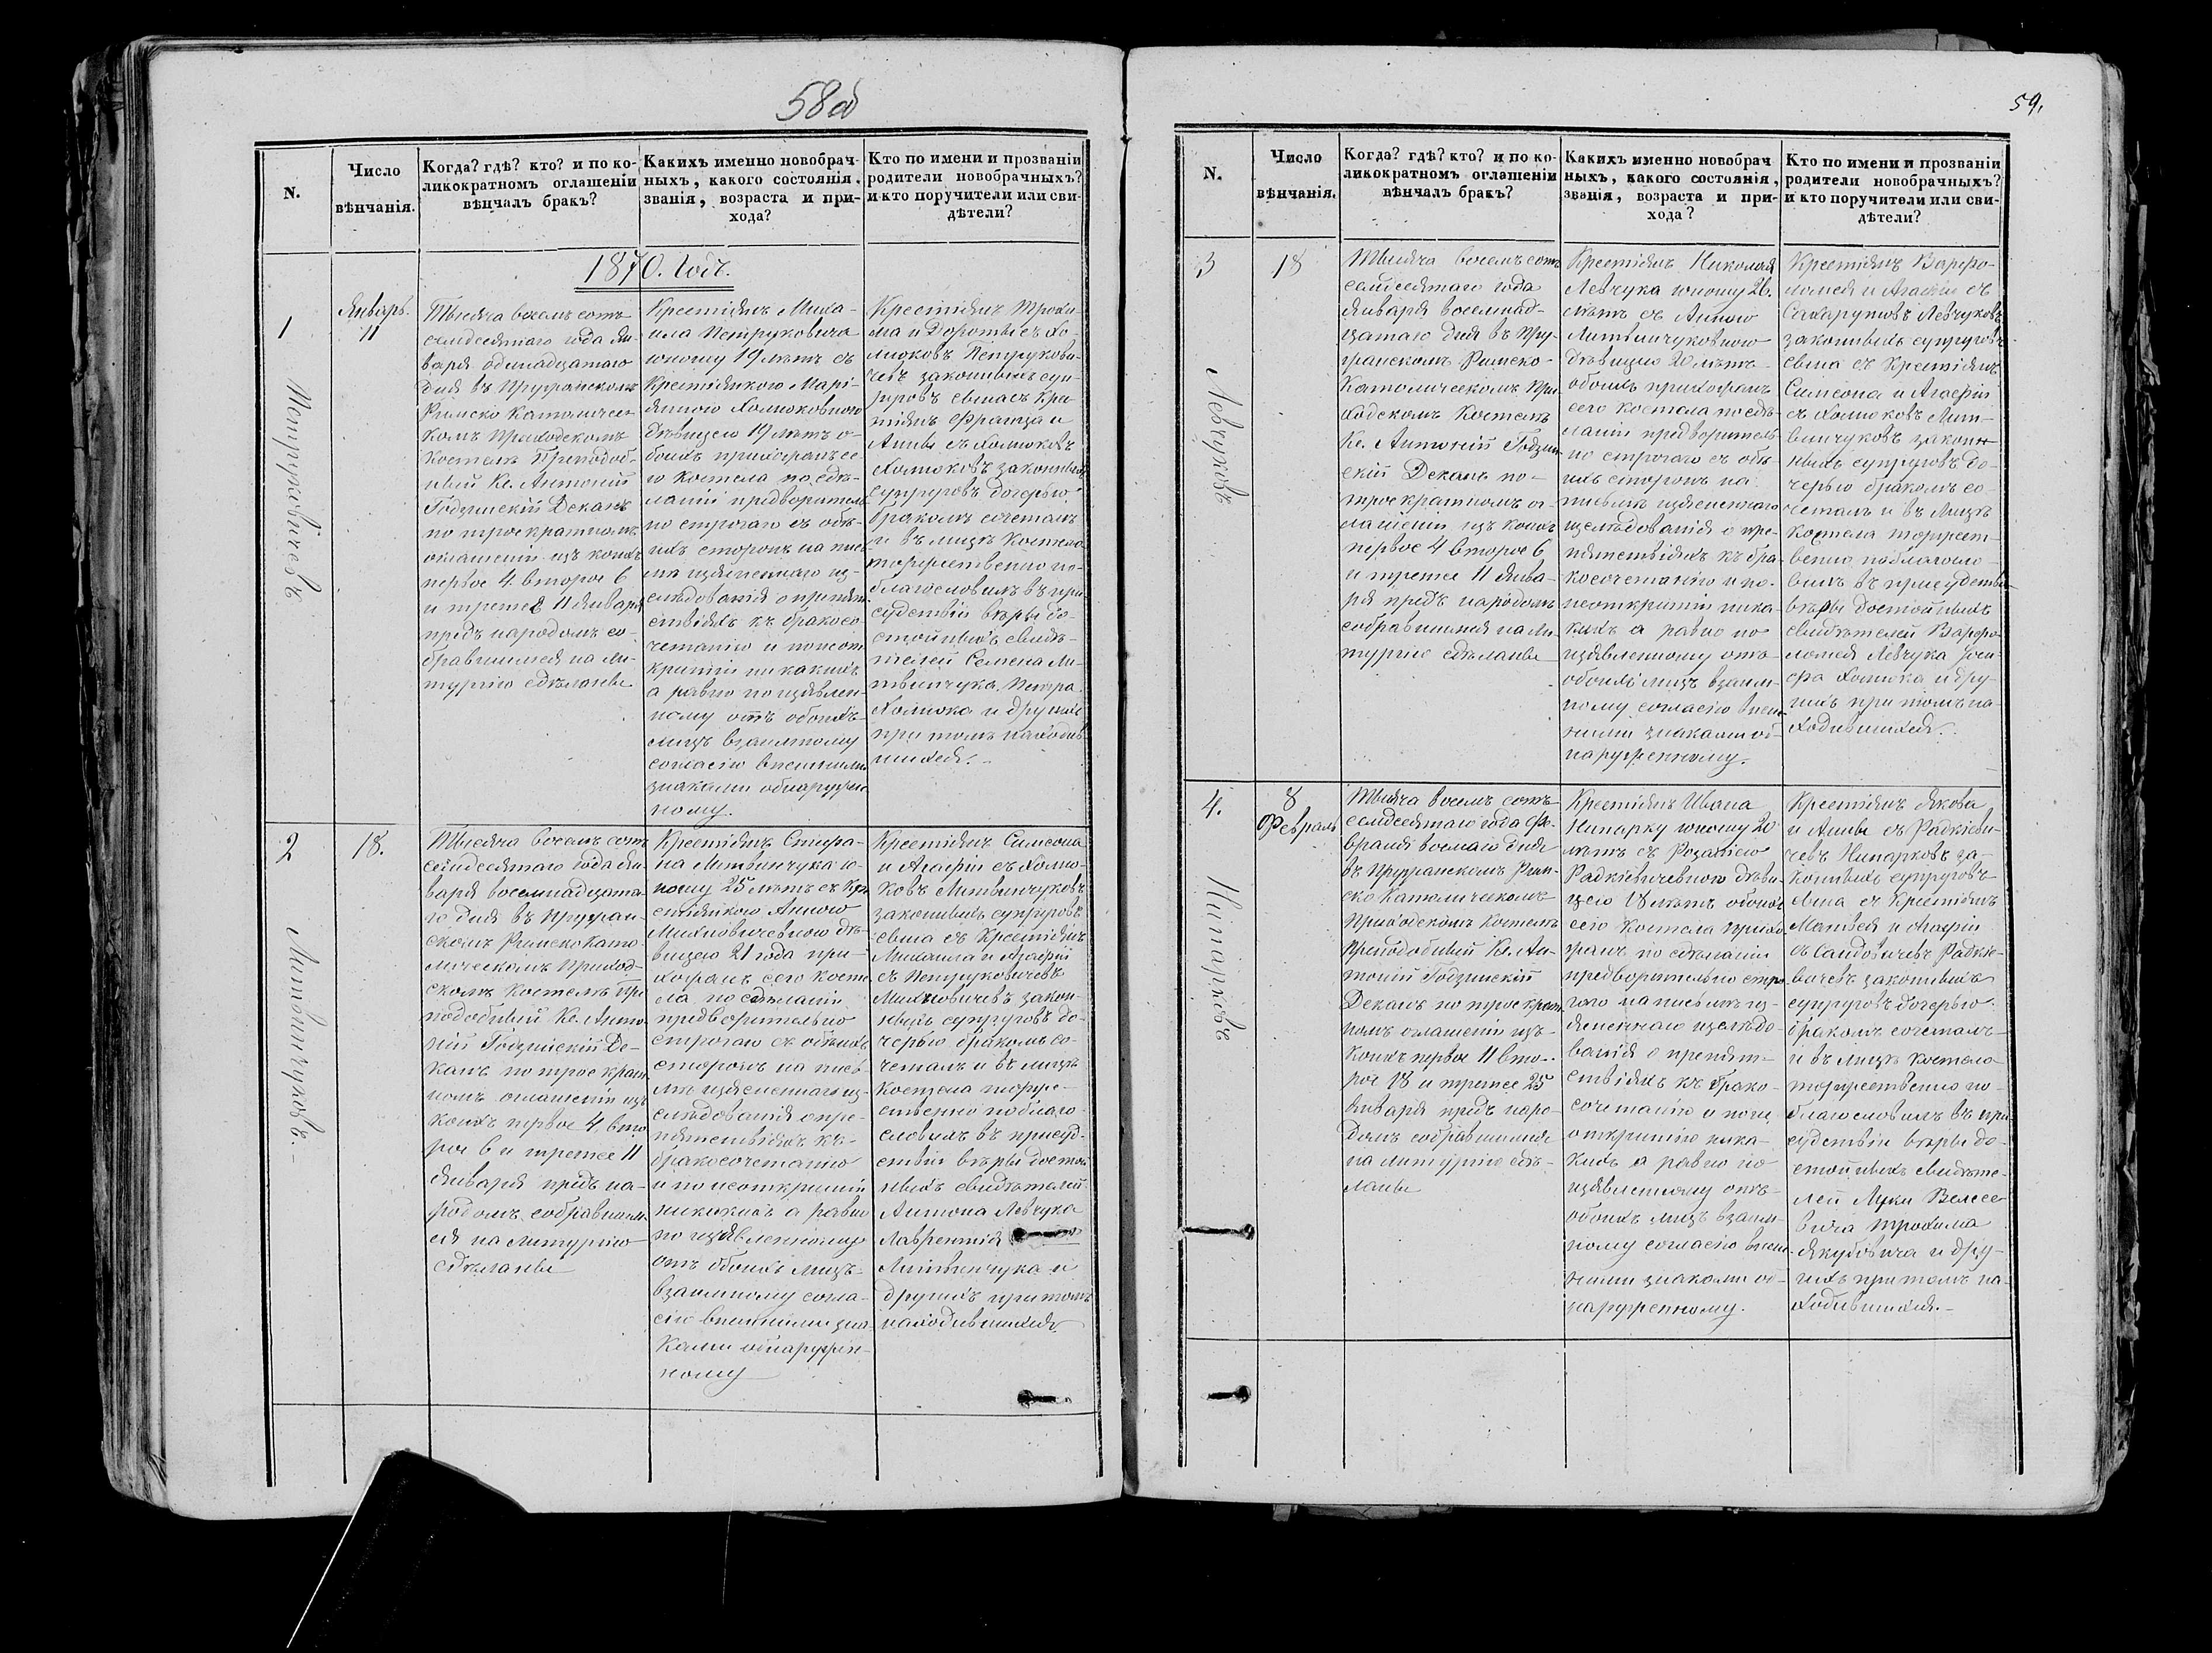 58об
N.
Число
вѣнчанія.
Когда? гдѣ? кто? и по ко-
ликократномъ оглашеніи
вѣнчалъ бракъ?
Какихъ именно новобрач-
ныхъ, какого состоянія,
званія, возраста и при-
хода?
Кто по имени и прозваніи
родители новобрачныхъ?
и кто поручители или сви-
дѣтели?
1870. Годъ.
1
Петруковичевъ
Январь.
11
Тысяча восемъ сотъ
семдесятаго года Ян-
варя одинадцатаго
дня въ Пружанскомъ
Римско Католичес-
комъ Приходскомъ
Костелѣ Преподоб-
ный Кс. Антоній
Годзинскій Деканъ
по троекратномъ
оглашеніи изъ коихъ
первое 4 второе 6
и третее 11 Января
предъ народомъ со-
бравшимся на Ли-
тургію сдѣланы
Крестіянъ Миха-
ила Петруковича
юношу 19 лѣтъ съ
Крестіянкою Марі-
янною Хомюковною
дѣвицею 19 лѣтъ о-
боихъ прихожанъ се-
го Костела по сдѣ-
ланіи предворитель-
но строгаго съ обѣ-
ихъ сторонъ на пись-
мѣ изъясненнаго из-
слѣдованія о препят-
ствіяхъ къ бракосо-
четанію и понеот-
крытіи никакихъ
а равно по изъявлен-
ному отъ обоихъ
лицъ взаимному
согласію внешними
знаками обнаружен-
ному.
Крестіянъ Трохи-
ма и Доротыи съ Хо-
мюковъ Петрукови-
чевъ законныхъ суп-
руговъ сына съ Кре-
стіянъ Франца и
Анны съ Хомюковъ
Хомюковъ законныхъ
супруговъ дочерью
бракомъ сочеталъ
и въ лицѣ Костела
торжественно по-
благословилъ въ при-
судствіи вѣры до-
стойныхъ свидѣ-
телей Семена Ли-
твинчука, Петра
Хомюка и другихъ
при томъ находив-
шихся.
2
Литвинчуковъ.
18.
Тысяча восемъ сотъ
семдесятаго года Ян-
варя восемнадцата-
го дня въ Пружан-
скомъ Римско Като-
лическомъ Приход-
скомъ Костелѣ Пре-
подобный Кс. Анто-
ній Годзинскій Де-
канъ по троекрат-
номъ оглашеніи изъ
коихъ первое 4 вто-
рое 6 и третее 11
Января предъ на-
родомъ собравшим-
ся на Литургію
сдѣланы
Крестіянъ Стефа-
на Литвинчука ю-
ношу 25 лѣтъ съ Кре-
стіянкою Анною
Михновичевною дѣ-
вицею 21 года при-
хожанъ сего Косте-
ла по сдѣланіи
предворительно
строгаго съ обѣихъ
сторонъ на пись-
мѣ изъясненнаго из-
слѣдованія о пре-
пятствіяхъ къ
бракосочетанію
и по неоткрытіи
никакихъ а равно
по изъявленному
отъ обоихъ лицъ
взаимному согла-
сію внешними зна-
ками обнаружен-
ному
Крестіянъ Симеона
и Агафіи съ Хомю-
ковъ Литвинчуковъ
законныхъ супруговъ
сына съ Крестіянъ
Михаила и Агафіи
съ Петруковичевъ
Михновичевъ закон-
ныхъ супруговъ до-
черью бракомъ со-
четалъ и въ лицѣ
Костела торже-
ственно поблаго-
словилъ въ присуд-
ствіи вѣры достой-
ныхъ свидѣтелей
Антона Левчука
Лаврентія
Литвинчука и
другихъ при томъ
находившихся
59.
N.
Число
вѣнчанія.
Когда? гдѣ? кто? и по ко-
ликократномъ оглашеніи
вѣнчалъ бракъ?
Какихъ именно новобрач
ныхъ, какого состоянія,
званія, возраста и при-
хода?
Кто по имени и прозваніи
родители новобрачныхъ?
и кто поручители или сви-
дѣтели?
3
Левчуковъ
18
Тысяча восемъ сотъ
семдесятаго года
Января восемнад-
цатаго дня въ Пру-
жанскомъ Римско-
Католическомъ При-
ходскомъ Костелѣ
Кс. Антоній Годзин-
скій Деканъ по-
троекратномъ ог-
лашеніи изъ коихъ
первое 4 второе 6
и третее 11 Янва-
ря предъ народомъ
собравшимся на Ли-
тургію сдѣланы
Крестіянъ Николая
Левчука юношу 26.
лѣтъ съ Анною
Литвинчуковною
дѣвицею 20 лѣтъ
обоихъ прихожанъ
сего Костела по сдѣ-
ланіи предворитель-
но строгаго съ обѣ-
ихъ сторонъ на
письмѣ изъясненнаго
изслѣдованія о пре-
пятствіяхъ къ бра-
косочетанію и по-
неоткрытіи ника-
кихъ а равно по
изъявленному отъ
обоихъ лицъ взаим-
ному согласію внеш-
ними знаками об-
наруженному.
Крестіянъ Варфо-
ломея и Агафіи съ
Сахарутовъ Левчуковъ
законныхъ супруговъ
сына съ Крестіянъ
Симеона и Агафіи
съ Хомюковъ Лит-
винчуковъ закон-
ныхъ супруговъ до-
черью бракомъ со-
четалъ и въ лицѣ
Костела торжест-
венно поблагосло-
вилъ въ присудствіи
вѣры достойныхъ
свидѣтелей Варфо-
ломея Левчука Іоси-
фа Хомюка и дру-
гихъ при томъ на-
ходившихся.
4.
Нипарковъ
8
Февраль
Тысяча восемъ сотъ
семдесятаго года Фе-
враля восмаго дня
въ Пружанскомъ Рим-
ско Католическомъ
Приходскомъ Костелѣ
Преподобный Кс. Ан-
тоній Годзинскій
Деканъ по троекрат-
номъ оглашеніи изъ
коихъ первое 11 вто-
рое 18 и третее 25
Января предъ наро-
домъ собравшимся
на литургію сдѣ-
ланы
Крестіянъ Ивана
Нипарку юношу 20
лѣтъ съ Розаліею
Радкіевичевною дѣви-
цею 18 лѣтъ обоихъ
сего Костела прихо-
жанъ по сдѣланіи
предворительно стро-
гаго на письмѣ из-
ъясненнаго изслѣдо-
ванія о препят-
ствіяхъ къ брако-
сочетанію и поне-
открытію ника-
кихъ а равно по
изъявленному отъ
обоихъ лицъ взаим-
ному согласію внеш-
ними знаками об-
наруженному.
Крестіянъ Якова
и Анны съ Радкіеви-
чевъ Нипарковъ за-
конныхъ супруговъ
сына съ Крестіянъ
Матвея и Агафіи
съ Сандовичевъ Радкіе-
вичевъ законныхъ
супруговъ дочерью
бракомъ сочеталъ
и въ лицѣ Костела
торжественно по-
благословилъ въ при-
судствіи вѣры до-
стойныхъ свидѣте-
лей Луки Велесе-
вича Трохима
Якубовича и дру-
гихъ при томъ на-
ходившихся.